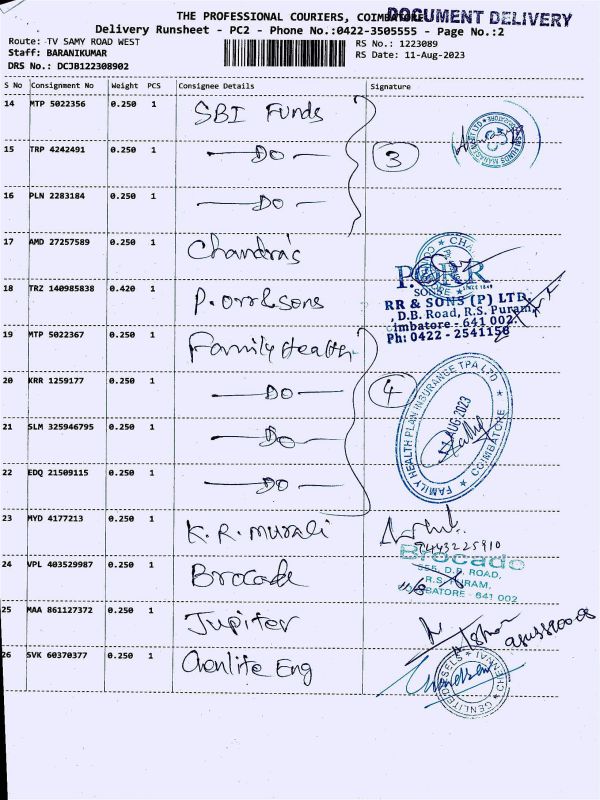 THE PROFESSIONAL COURIERS, COIMBATORE
DOCUMENT DELIVERY
Delivery Runsheet - PC2 - Phone No.:0422-3505555 - Page No.:2
Route: TV SAMY ROAD WEST RS No.: 1223089
Staff: BARANIKUMAR RS Date: 11-Aug-2023
DRS No.: DCJB122308902
S No Consignment No Weight PCS Consignee Details Signature
14 MTP 5022356 0.250 1 SBI Funds
15 TRP 4242491 0.250 1 — DO — 3
16 PLN 2283184 0.250 1 — DO —
17 AMD 27257589 0.250 1 Chandra's
18 TRZ 140985838 0.420 1 P. Orr & Sons
P.ORR
SONS
SINCE 1849
RR & SONS (P) LTD.
, D.B. Road, R.S. Puram,
imbatore - 641 002.
Ph: 0422 - 2541150
19 MTP 5022367 0.250 1 Family Health
20 KRR 1259177 0.250 1 — DO — 4
21 SLM 325946795 0.250 1 — DO —
22 EDQ 21509115 0.250 1 — DO —
FAMILY HEALTH PLAN INSURANCE TPA LTD
AUG 2023
COIMBATORE
23 MYD 4177213 0.250 1 K. R. Murali
9443225910
24 VPL 403529987 0.250 1 Brocade
Brocade
555, D.B. ROAD,
R.S. PURAM,
COIMBATORE - 641 002
25 MAA 861127372 0.250 1 Jupiter
26 SVK 60370377 0.250 1 Genlite Eng
CHENNAI